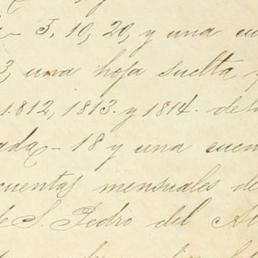 - 5, 10, 20, y una cu
3, una hoja suelta y
1.812, 1813. y 1814. de
ada - 18 y una cuen
cuentas mensuales de
de S. Pedro del A